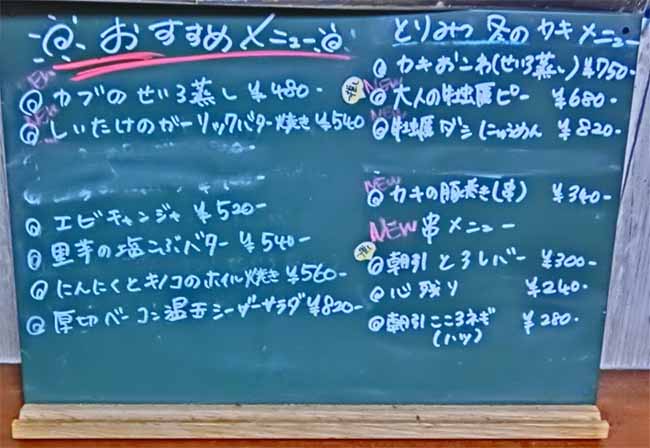 おすすめメニュー
NEW
カブのせいろ蒸し ¥480-
NEW
しいたけのガーリックバター焼き ¥540
エビチャンジャ ¥520-
里芋の塩こぶバター ¥540-
にんにくとキノコのホイル焼き ¥560-
厚切ベーコン温玉シーザーサラダ ¥820-
とりみつ冬のカキメニュー
カキおこわ(せいろ蒸し) ¥750-
推し
NEW
大人の牡蠣ピー ¥680-
NEW
牡蠣ダシにゅうめん ¥820-
NEW
カキの豚巻き(串) ¥340-
NEW 串メニュー
推し
朝引とろレバー ¥300-
心残り ¥240-
朝引こころネギ ¥280-
(ハツ)